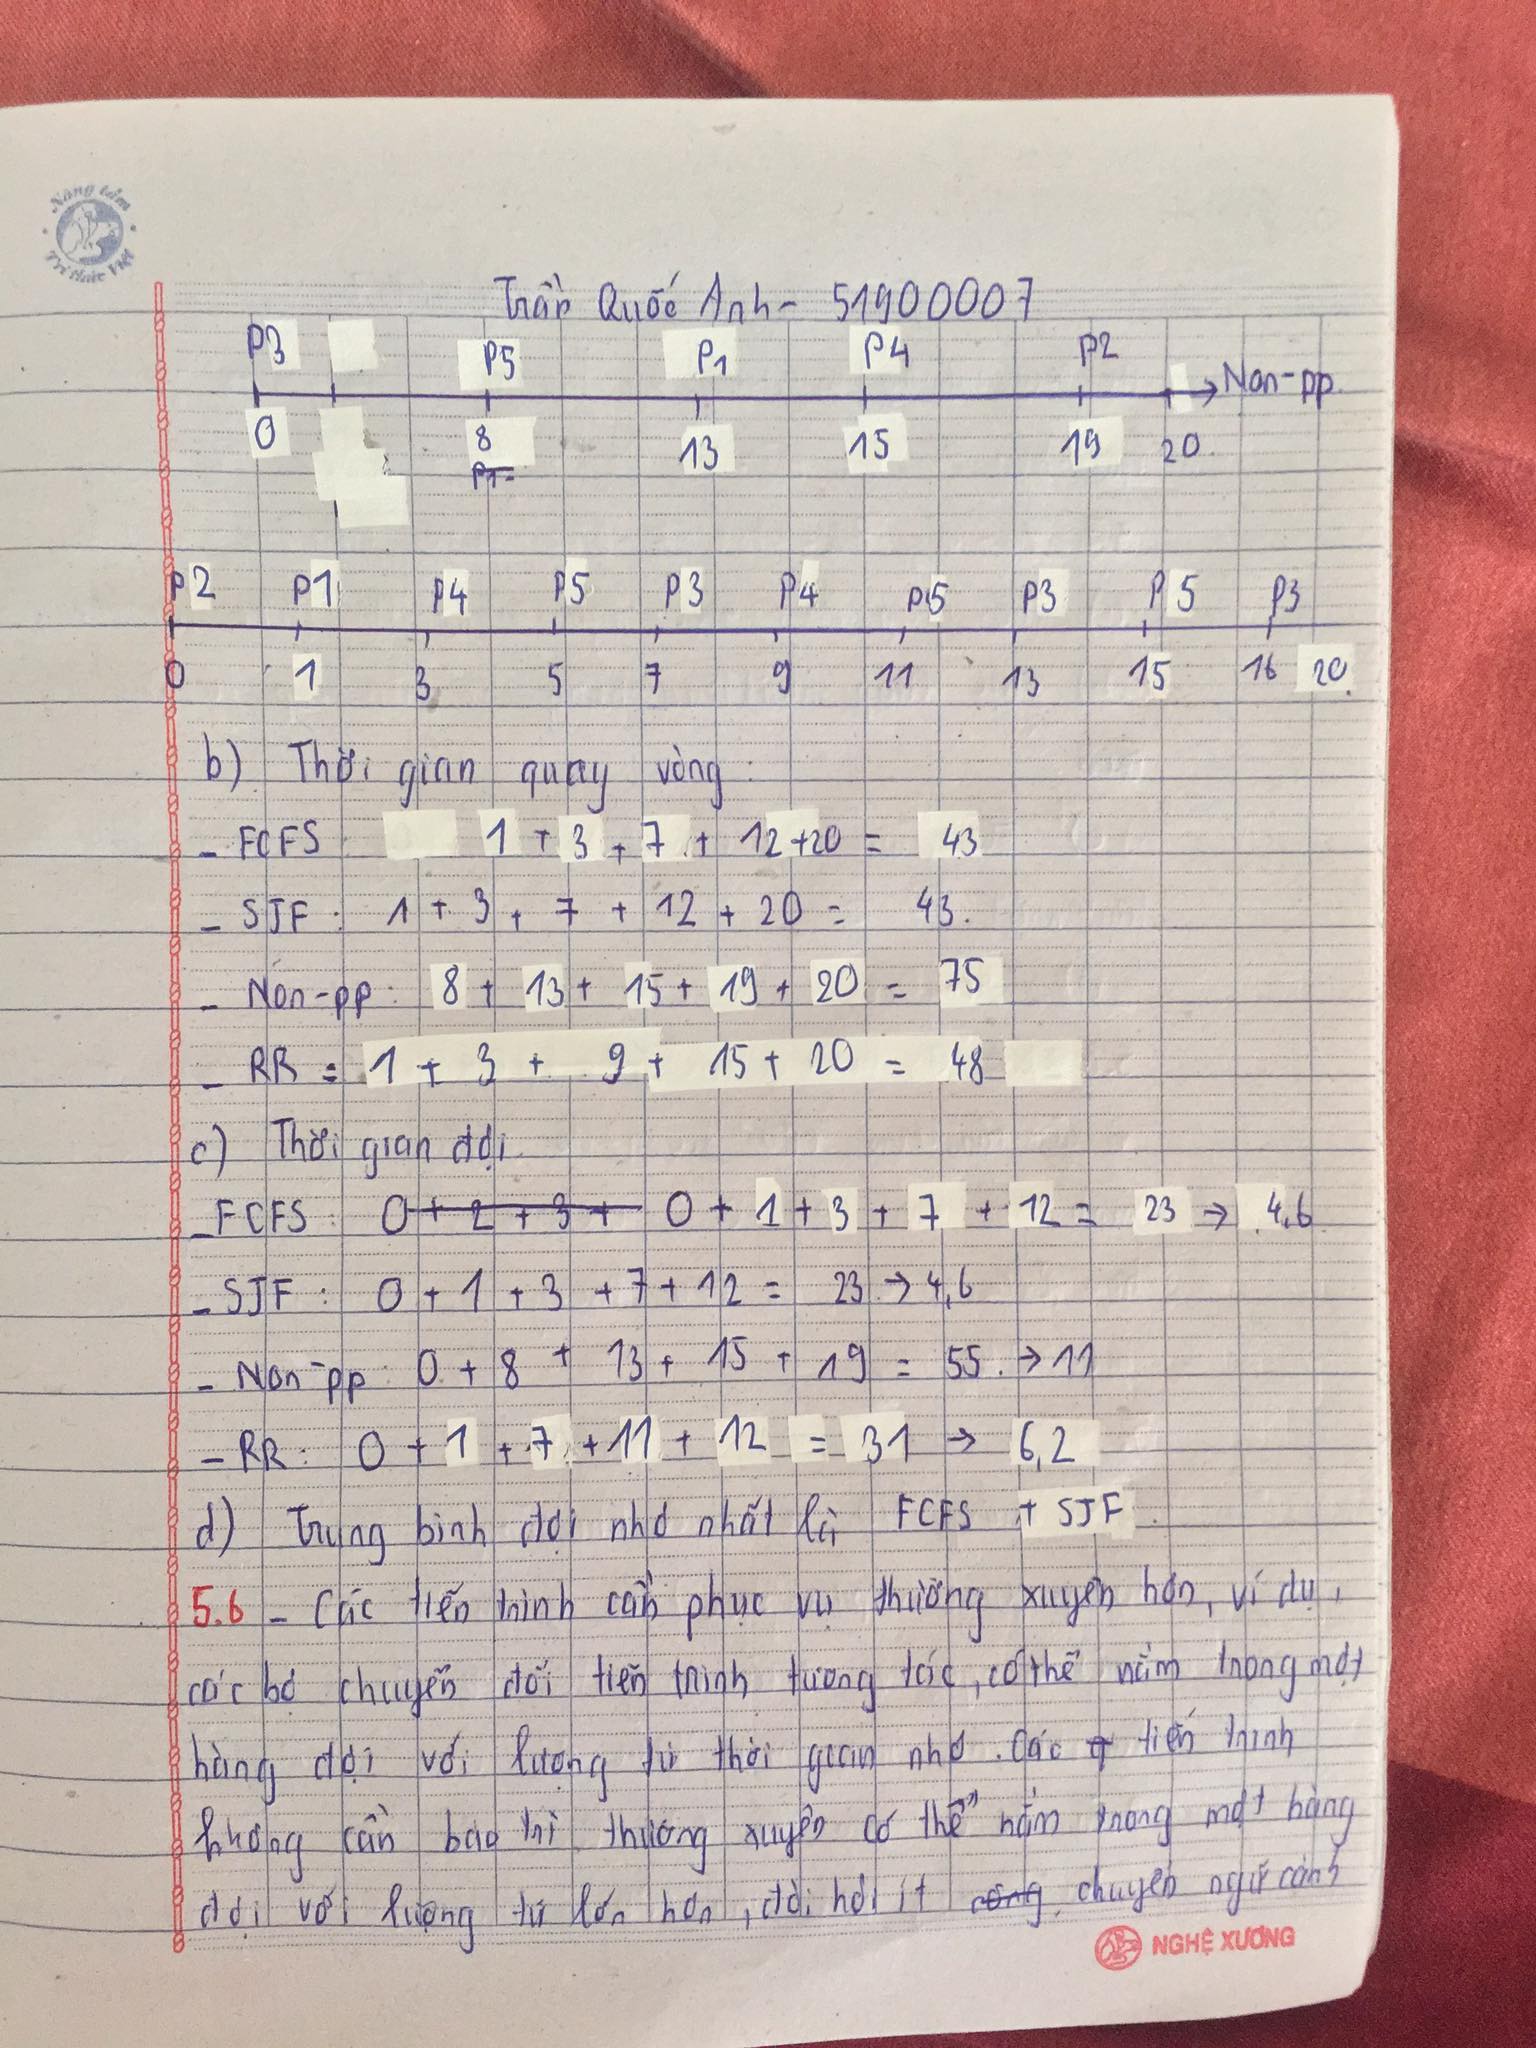 Nâng tầm
Tri thức Việt
Trần Quốc Anh - 51900007
P3 P5 P1 P4 P2
Non-pp
0 8 13 15 19 20
P1=
P2 P1 P4 P5 P3 P4 P5 P3 P5 P3
0 1 3 5 7 9 11 13 15 16 20
b) Thời gian quay vòng:
- FCFS 1 + 3 + 7 + 12 + 20 = 43
- SJF: 1 + 3 + 7 + 12 + 20 = 43.
- Non-pp: 8 + 13 + 15 + 19 + 20 = 75
- RR = 1 + 3 + 9 + 15 + 20 = 48
c) Thời gian đợi
- FCFS: 0 + 2 + 3 + 0 + 1 + 3 + 7 + 12 = 23 → 4,6
- SJF: 0 + 1 + 3 + 7 + 12 = 23 → 4,6
- Non-pp: 0 + 8 + 13 + 15 + 19 = 55. → 11
- RR: 0 + 1 + 7 + 11 + 12 = 31 → 6,2
d) Trung bình đợi nhỏ nhất là FCFS + SJF.
5.6 - Các tiến trình cần phục vụ thường xuyên hơn, ví dụ,
các bộ chuyển đổi tiến trình tương tác, có thể nằm trong một
hàng đợi với lượng tử thời gian nhỏ. Các tiến trình
không cần bảo trì thường xuyên có thể nằm trong một hàng
đợi với lượng tử lớn hơn, đòi hỏi ít công chuyển ngữ cảnh
NGHỆ XƯƠNG